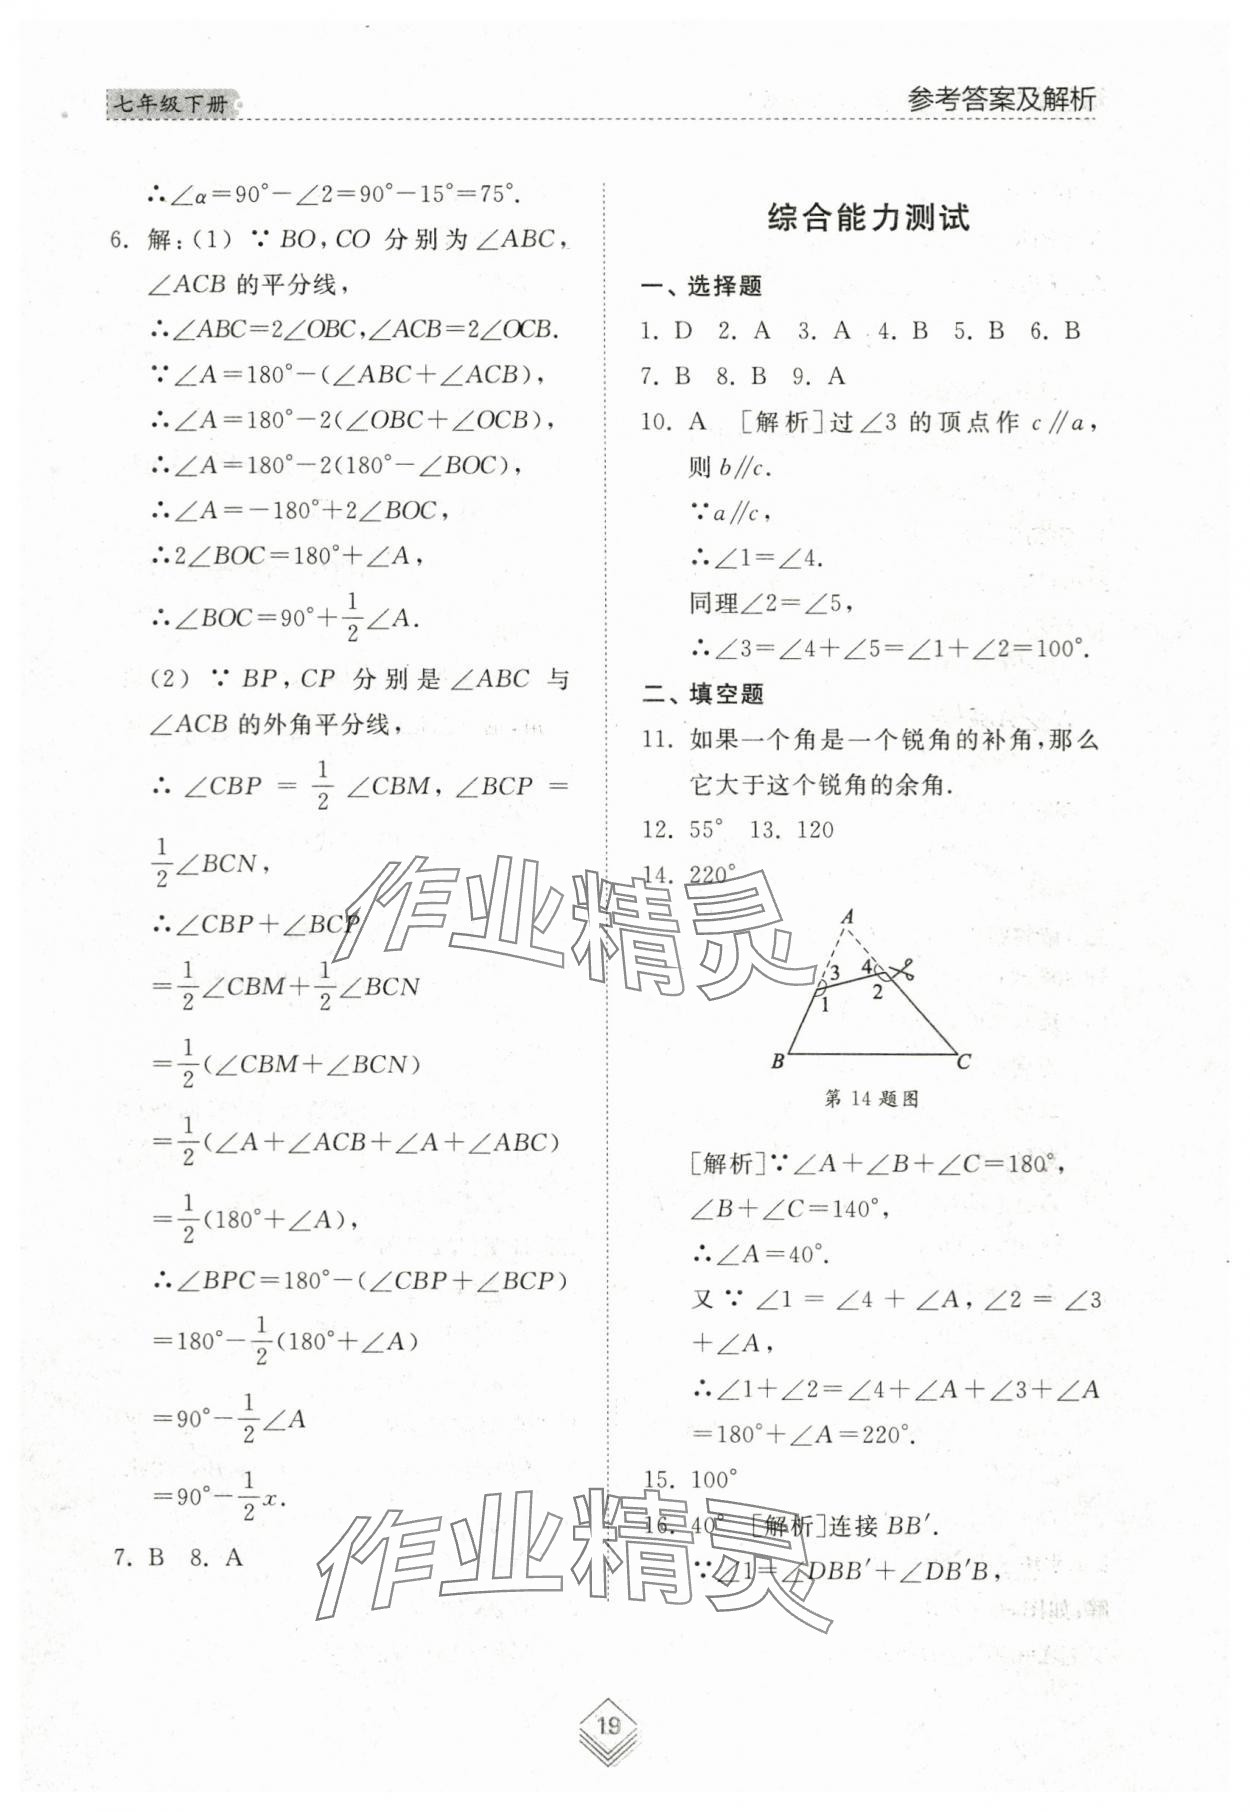 七年级下册
参考答案及解析
∴∠α=90°-∠2=90°-15°=75°.
6. 解:(1) ∵ BO, CO 分别为∠ABC,
∠ACB 的平分线,
∴∠ABC=2∠OBC,∠ACB=2∠OCB.
∵∠A=180°-(∠ABC+∠ACB),
∴∠A=180°-2(∠OBC+∠OCB),
∴∠A=180°-2(180°-∠BOC),
∴∠A=-180°+2∠BOC,
∴2∠BOC=180°+∠A,
∴∠BOC=90°+1/2∠A.
(2) ∵ BP, CP 分别是∠ABC 与
∠ACB 的外角平分线,
∴ ∠CBP = 1/2 ∠CBM, ∠BCP =
1/2∠BCN,
∴∠CBP+∠BCP
=1/2∠CBM+1/2∠BCN
=1/2(∠CBM+∠BCN)
=1/2(∠A+∠ACB+∠A+∠ABC)
=1/2(180°+∠A),
∴∠BPC=180°-(∠CBP+∠BCP)
=180°-1/2(180°+∠A)
=90°-1/2∠A
=90°-1/2x.
7. B 8. A
综合能力测试
一、选择题
1. D 2. A 3. A 4. B 5. B 6. B
7. B 8. B 9. A
10. A [解析]过∠3 的顶点作 c∥a,
则 b∥c.
∵a∥c,
∴∠1=∠4.
同理∠2=∠5,
∴∠3=∠4+∠5=∠1+∠2=100°.
二、填空题
11. 如果一个角是一个锐角的补角,那么
它大于这个锐角的余角.
12. 55° 13. 120
14. 220°
A
3 4
1 2
B C
第 14 题图
[解析]∵∠A+∠B+∠C=180°,
∠B+∠C=140°,
∴∠A=40°.
又 ∵ ∠1 = ∠4 + ∠A, ∠2 = ∠3
+∠A,
∴∠1+∠2=∠4+∠A+∠3+∠A
=180°+∠A=220°.
15. 100°
16. 40° [解析]连接 BB′.
∵∠1=∠DBB′+∠DB′B,
作业精灵
作业精灵
19